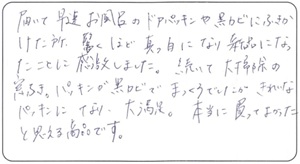 届いて早速お風呂のドアパッキンや黒カビにふきか
けた所、驚くほど真っ白になり新品になっ
たことに感激しました。続いて大掃除の
窓ふき。パッキンが黒カビでまっくろでしたが きれいな
パッキンになり、大満足。本当に買ってよかった
と思える商品です。